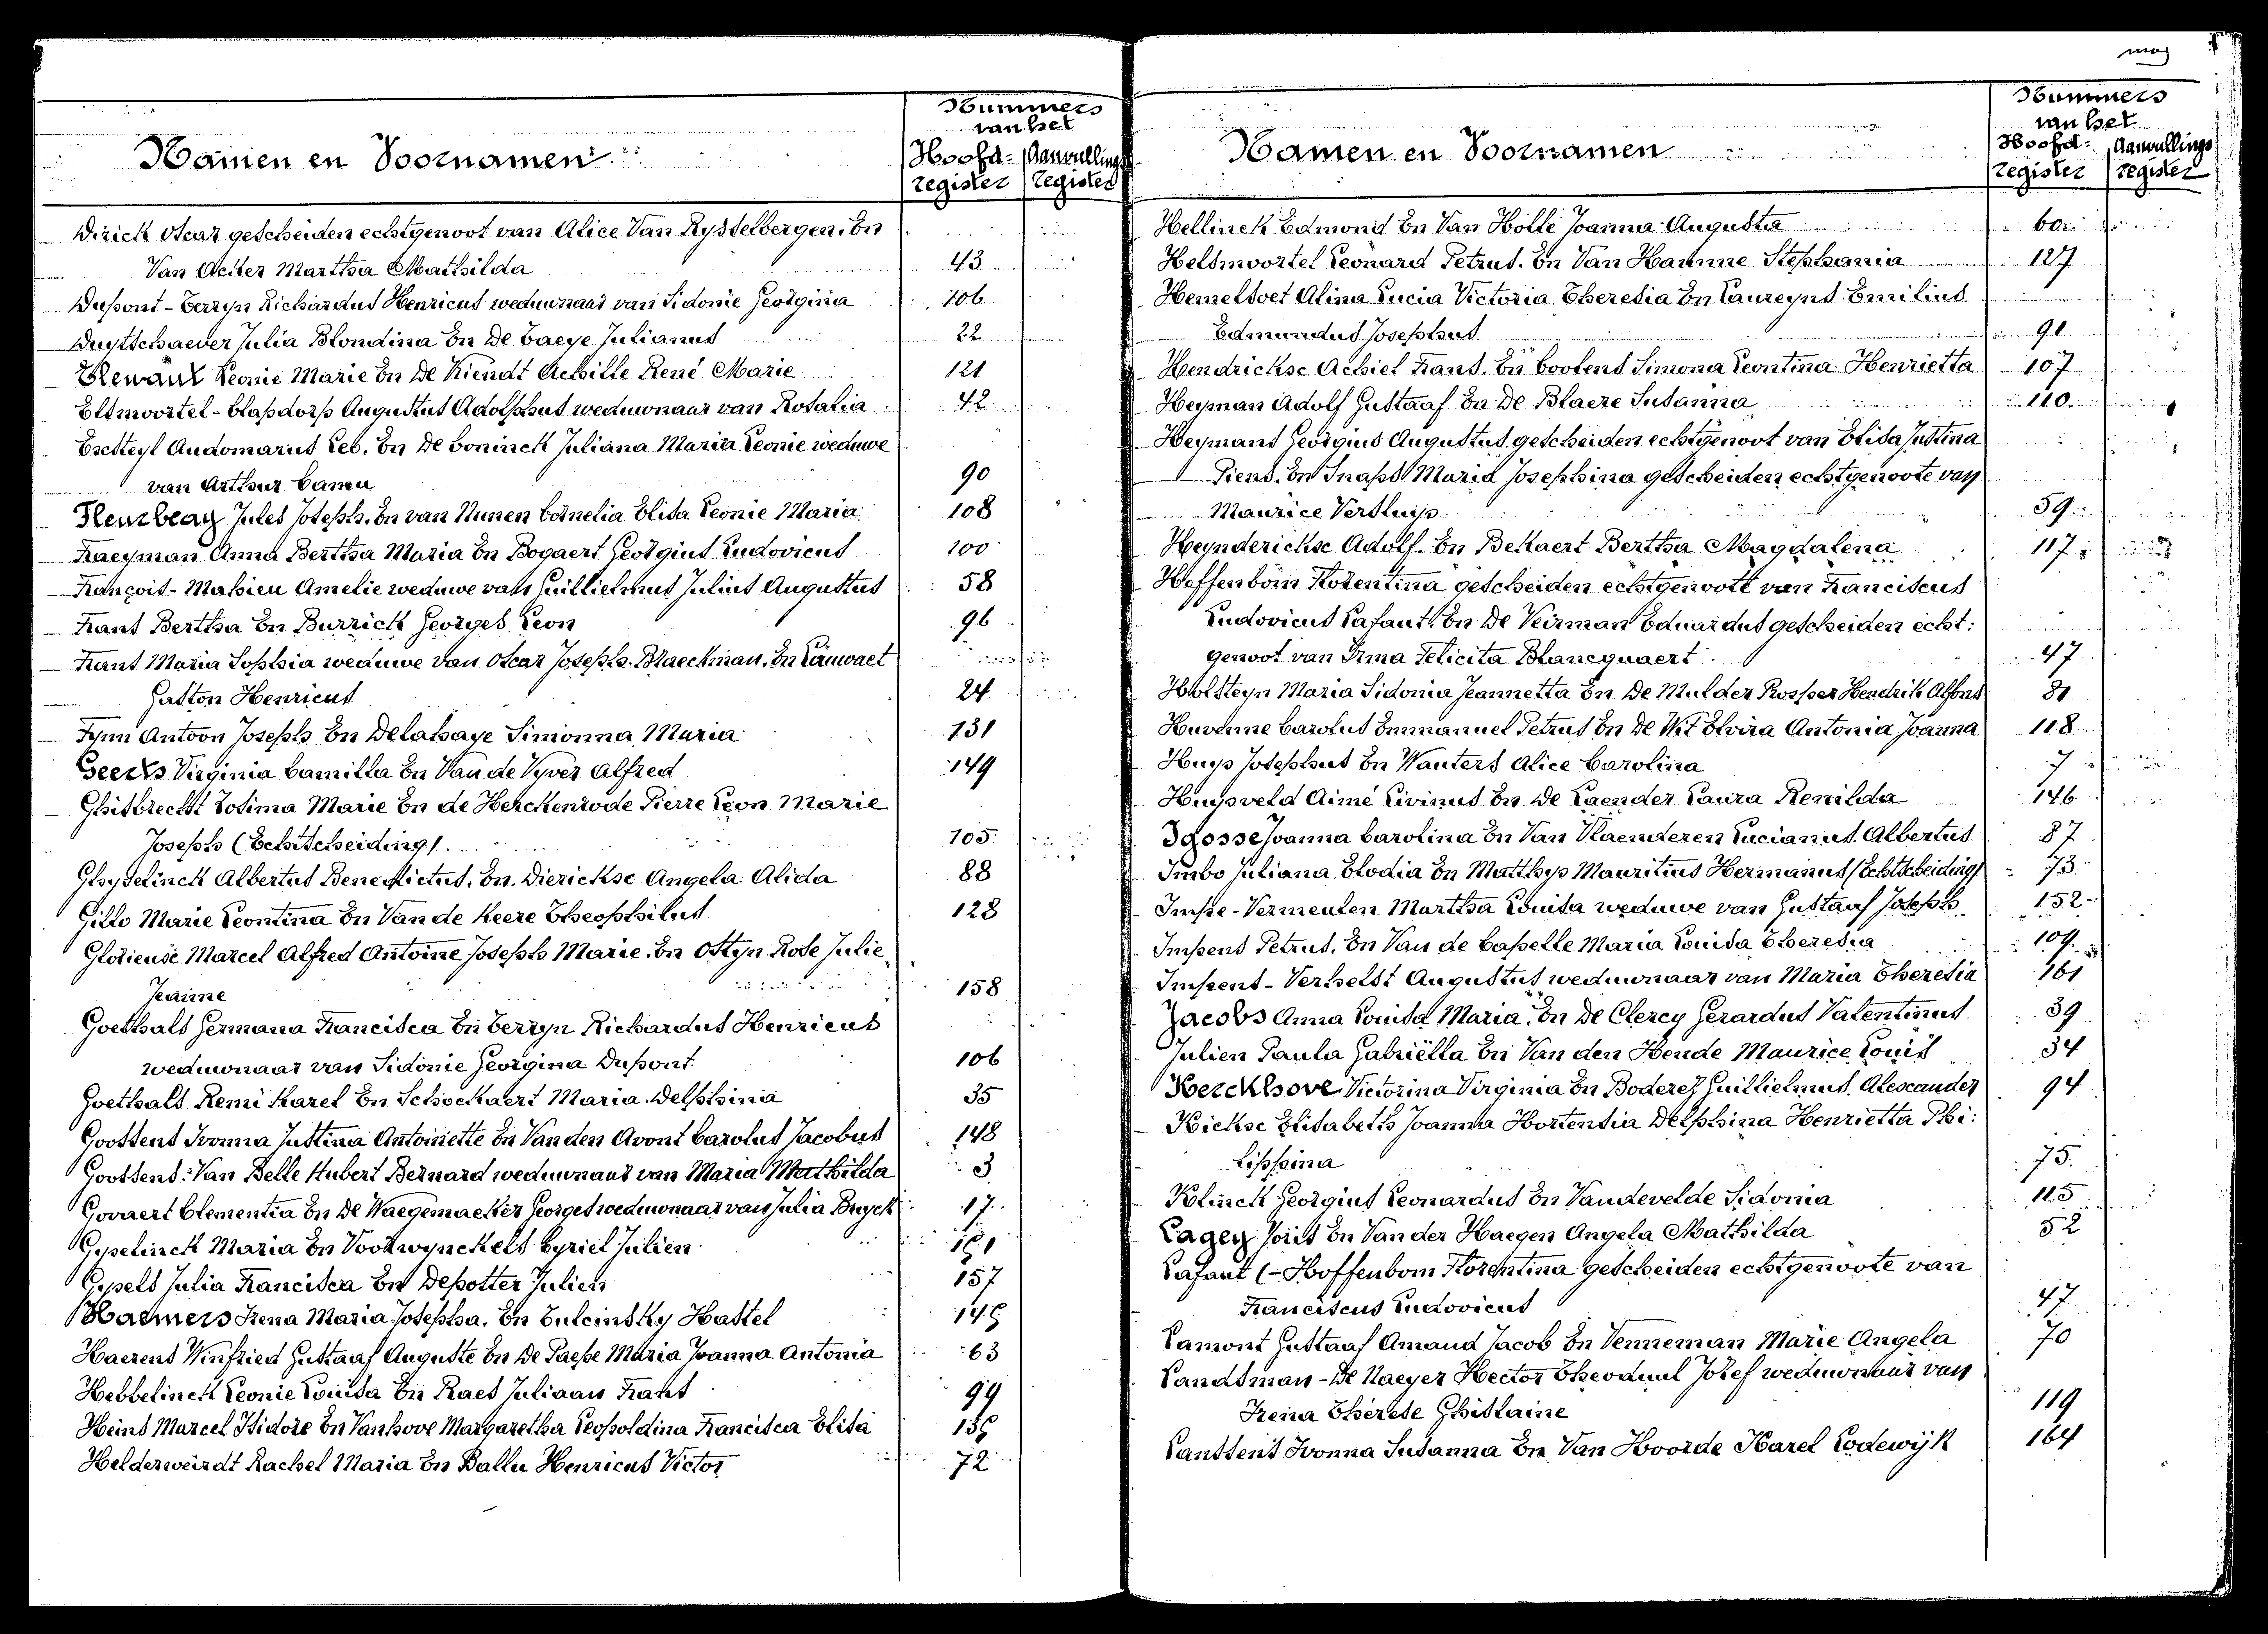 Namen en Voornamen
Nummers
van het
Hoofd- Aanvullings
register register
Dirick Oscar gescheiden echtgenoot van Alice Van Rysselbergen. En
Van Acker Martha Mathilda 43
Dupont - Cerryn Richardus Henricus weduwnaar van Sidonie Georgina 106
Duytschaever Julia Blondina En De Baeye Julianus 22
Leonie Marie En De Kiendt Achille René Marie 121
Elsmoortel - Clapdorp Augustus Adolphus weduwnaar van Rosalia 42
Eecsteyl Audomarus Ceb. En De Coninck Juliana Maria Leonie weduwe
van Arthur Camu 90
Fleurbeay Jules Joseph. En van Nunen Cornelia Elisa Leonie Maria 108
Fraeyman Anna Bertha Maria En Bogaert Georgius Ludovicus 100
François - Mahieu Amelie weduwe van Guillielmus Julius Augustus 58
Frans Bertha En Burrick Georges Leon 96
Frans Maria Sophia weduwe van Oscar Joseph Braeckman. En Lauwaet
Gaston Henricus 24
Fynn Antoon Joseph En Delahaye Simonna Maria 131
Geerts Virginia Camilla En Van de Vyver Alfred 149
Ghisbrecht Zosima Marie En de Herckenrode Pierre Leon Marie
Joseph (Echtscheiding). 105
Ghyselinck Albertus Benedictus. En. Dierickse Angela Alida 88
Gillo Marie Leontina En Van de Keere Theophilus 128
Glorieuse Marcel Alfred Antoine Joseph Marie. En Ostyn Rose Julie
Jeanne 158
Goethals Germana Francisca En Cerryn Richardus Henricus
weduwnaar van Sidonie Georgina Dupont. 106
Goethals Remi Karel En Schockaert Maria Delphina 35
Goossens Ivonna Justina Antoinette En Van den Avont Carolus Jacobus 148
Goossens - Van Belle Hubert Bernard weduwnaar van Maria Mathilda 3
Govaert Clementia En De Waegemaeker Georges weduwnaar van Julia Bruyck 17
Gyselinck Maria En Vookwynckels Cyriel Julien
Gysels Julia Francisca En Depotter Julien 157
Haemers Irena Maria Josepha. En Culcinsky Hastel
Haerens Winfried Gustaaf Auguste En De Paepe Maria Joanna Antonia 63
Hebbelinck Leonie Louisa En Raes Juliaan Frans 99
Heins Marcel Isidore En Vanhove Margaretha Leopoldina Francisca Elisa
Helderweirdt Rachel Maria En Ballu Henricus Victor 72
Namen en Voornamen
Nummers
van het
Hoofd- Aanvullings
register register
Hellinck Edmond En Van Holle Joanna Augusta 60
Helsmoortel Leonard Petrus. En Van Hamme Stephania 127
Hemelsoet Alina Lucia Victoria Theresia En Laureyns Emilius
Edmundus Josephus 91
Hendrickse Achiel Frans. En Coolens Simona Leontina Henrietta 107
Heyman Adolf Gustaaf En De Blaere Susanna 110
Heymans Georgius Augustus gescheiden echtgenoot van Elisa Justina
Piens. En Snaps Maria Josephina gescheiden echtgenoote van
Maurice Versluip 59
Heynderickse Adolf. En Bekaert Bertha Magdalena 117
Hoffenbom Florentina gescheiden echtgenoote van Franciscus
Ludovicus Lafaut. En De Veirman Eduardus gescheiden echt:
genoot van Irma Felicita Blancquaert 47
Holsteyn Maria Sidonia Jeannetta En De Mulder Prosper Hendrik Alfons 81
Huvenne Carolus Emmanuel Petrus En De Wit Elvira Antonia Joanna 118
Huys Josephus En Wauters Alice Carolina 7
Huysveld Aimé Livinus En De Laender Laura Renilda 146
Igosse Joanna Carolina En Van Vlaenderen Lucianus Albertus 87
Imbo Juliana Elodia En Matthys Mauritius Hermanus (Echtscheiding) 73
Impe - Vermeulen Martha Louisa weduwe van Gustaaf Joseph 152
Impens Petrus. En Van de Capelle Maria Louisa Theresia 109
Impens - Verhelst Augustus weduwnaar van Maria Theresia 161
Jacobs Anna Louisa Maria. En De Clercq Gerardus Valentinus 39
Julien Paula Gabriëlla En Van den Hende Maurice Louis 34
Kerckhove Victorina Virginia EnBoderez Guillielmus Alexander 94
Kickse Elisabeth Joanna Hortensia Delphina Henrietta Phi:
lippina 75
Klinck Georgius Leonardus En Vandevelde Sidonia 115
Lagey Joris En Van der Haegen Angela Mathilda 52
Lafaut (- Hoffenbom Florentina gescheiden echtgenoote van
Franciscus Ludovicus 47
Lamont Gustaaf Amand Jacob En Venneman Marie Angela 70
Landsman - De Naeyer Hector Theoduul Jozef weduwnaar van
Irena Therese Ghislaine 119
Lanssens Ivonna Susanna En Van Hoorde Karel Lodewijk 164